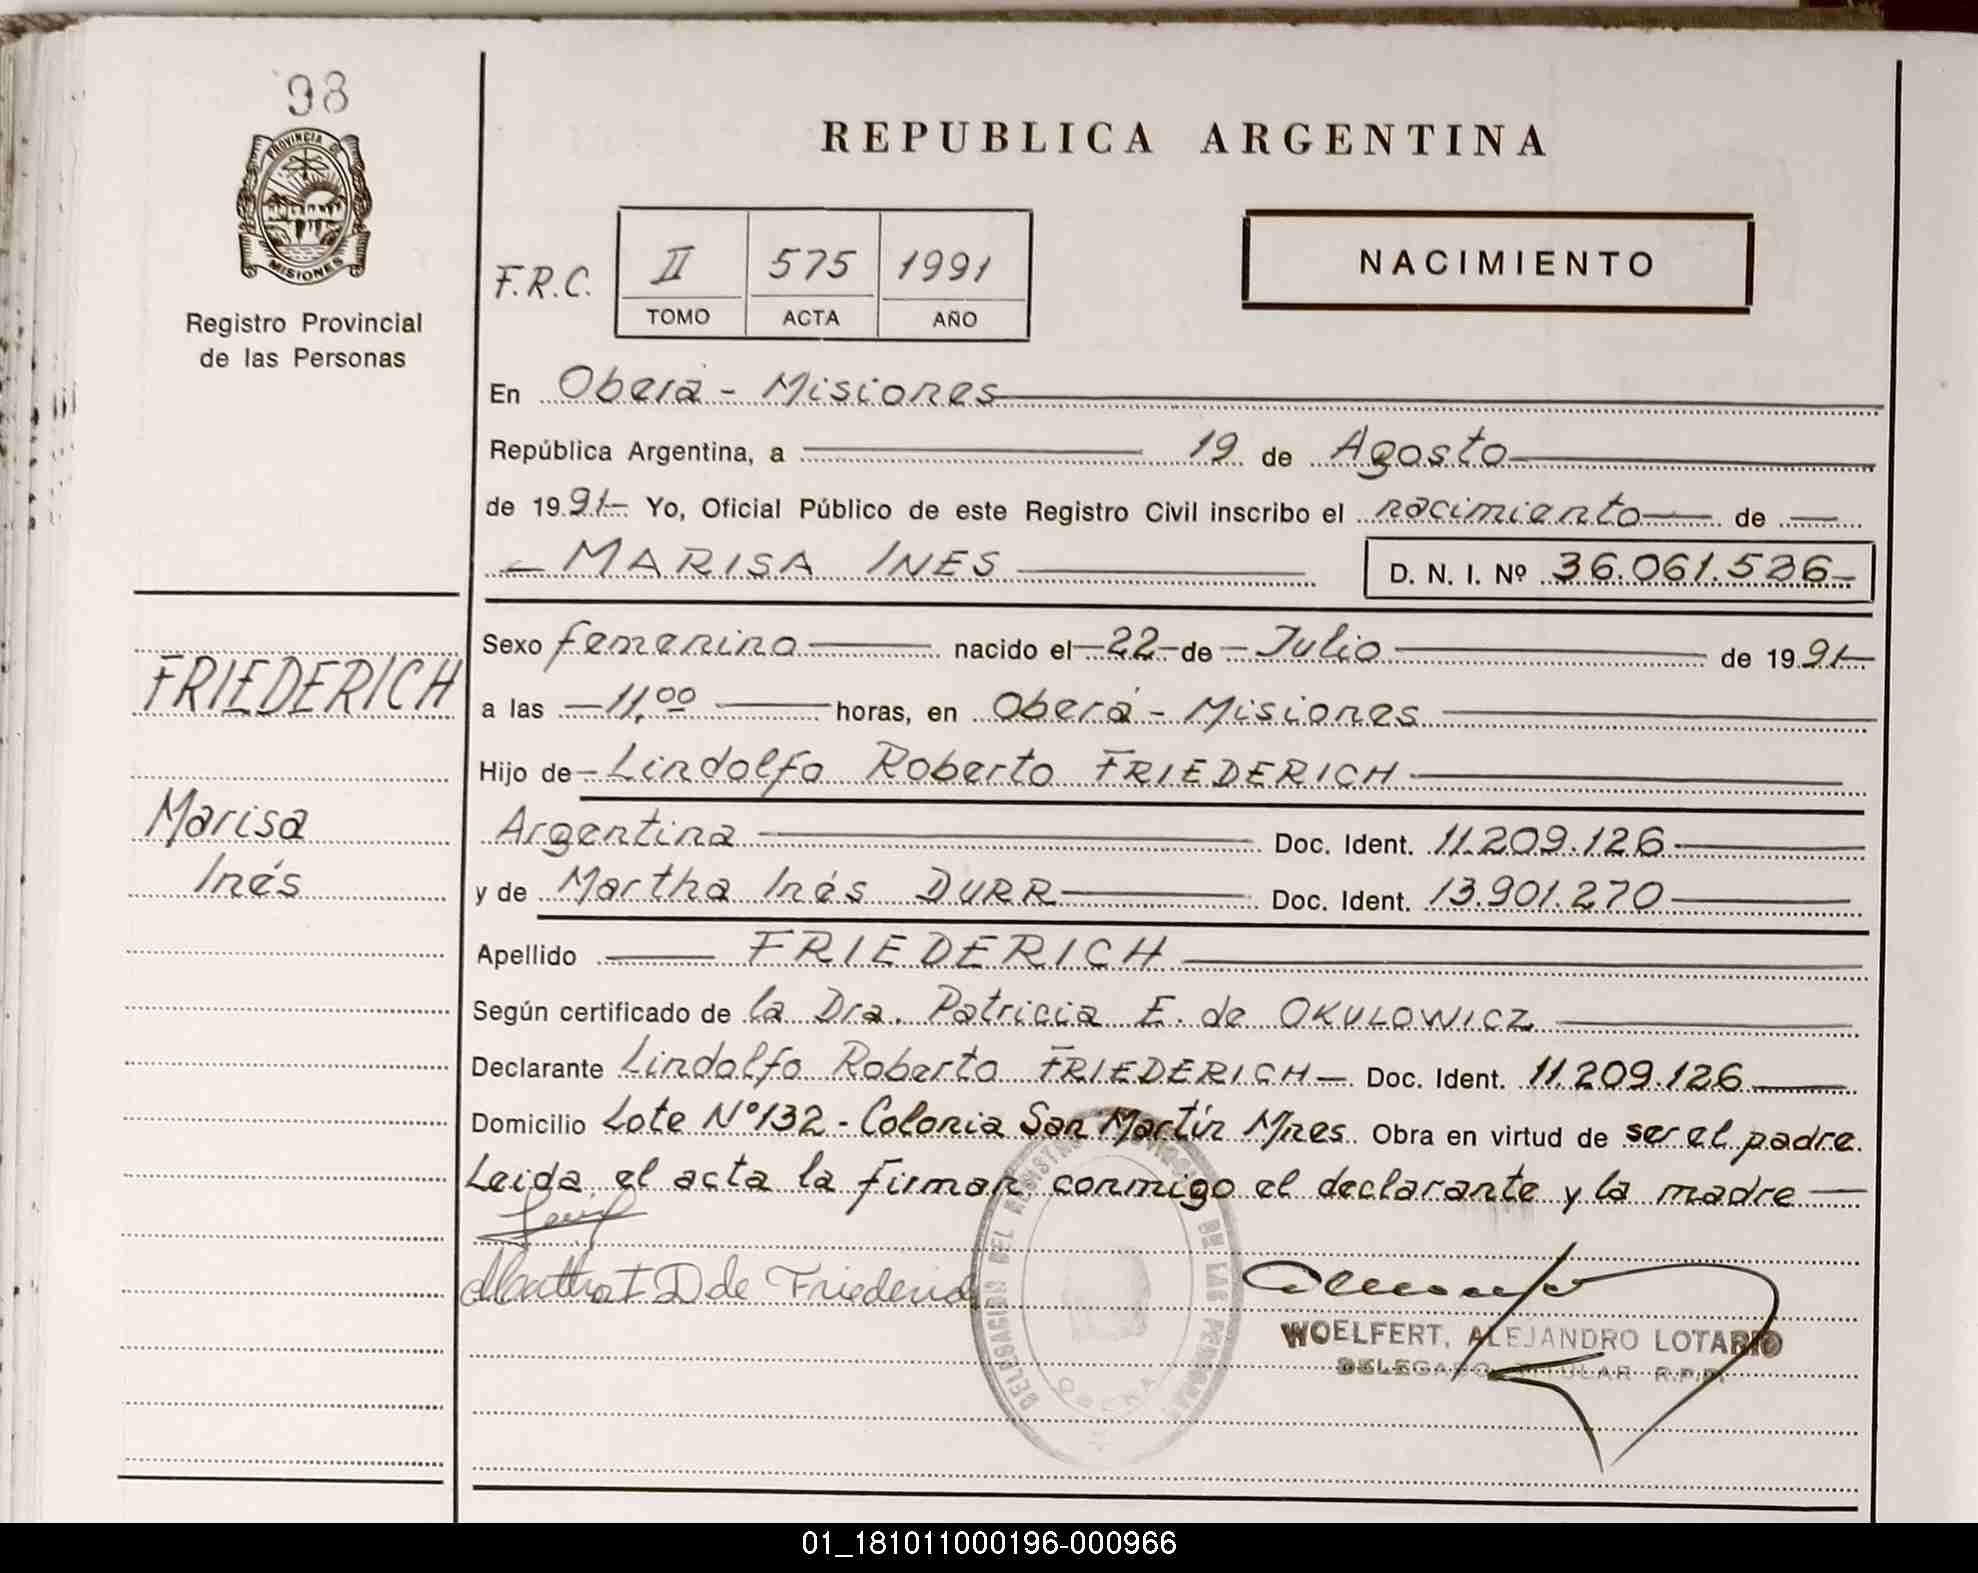 98
PROVINCIA DE
MISIONES
Registro Provincial
de las Personas
REPUBLICA ARGENTINA
F.R.C. II 575 1991
TOMO ACTA AÑO
NACIMIENTO
En Oberá - Misiones
República Argentina, a 19 de Agosto
de 1991- Yo, Oficial Público de este Registro Civil inscribo el nacimiento de
- MARISA INES D. N. I. Nº 36.061.536-
FRIEDERICH
Marisa
Inés
Sexo femenino nacido el 22 de Julio de 1991-
a las 11,00 horas, en Oberá - Misiones
Hijo de Lindolfo Roberto FRIEDERICH
Argentina Doc. Ident. 11.209.126
y de Martha Inés DURR Doc. Ident. 13.901.270
Apellido FRIEDERICH
Según certificado de la Dra. Patricia E. de OKULOWICZ
Declarante Lindolfo Roberto FRIEDERICH Doc. Ident. 11.209.126
Domicilio Lote Nº 132 - Colonia San Martín Mnes. Obra en virtud de ser el padre.
Leida el acta la firman conmigo el declarante y la madre
Martha I D de Friederich
DELEGACION DEL REGISTRO DE LAS PERSONAS
OBERA
WOELFERT, ALEJANDRO LOTARIO
DELEGADO TITULAR R.P.P.
01_181011000196-000966